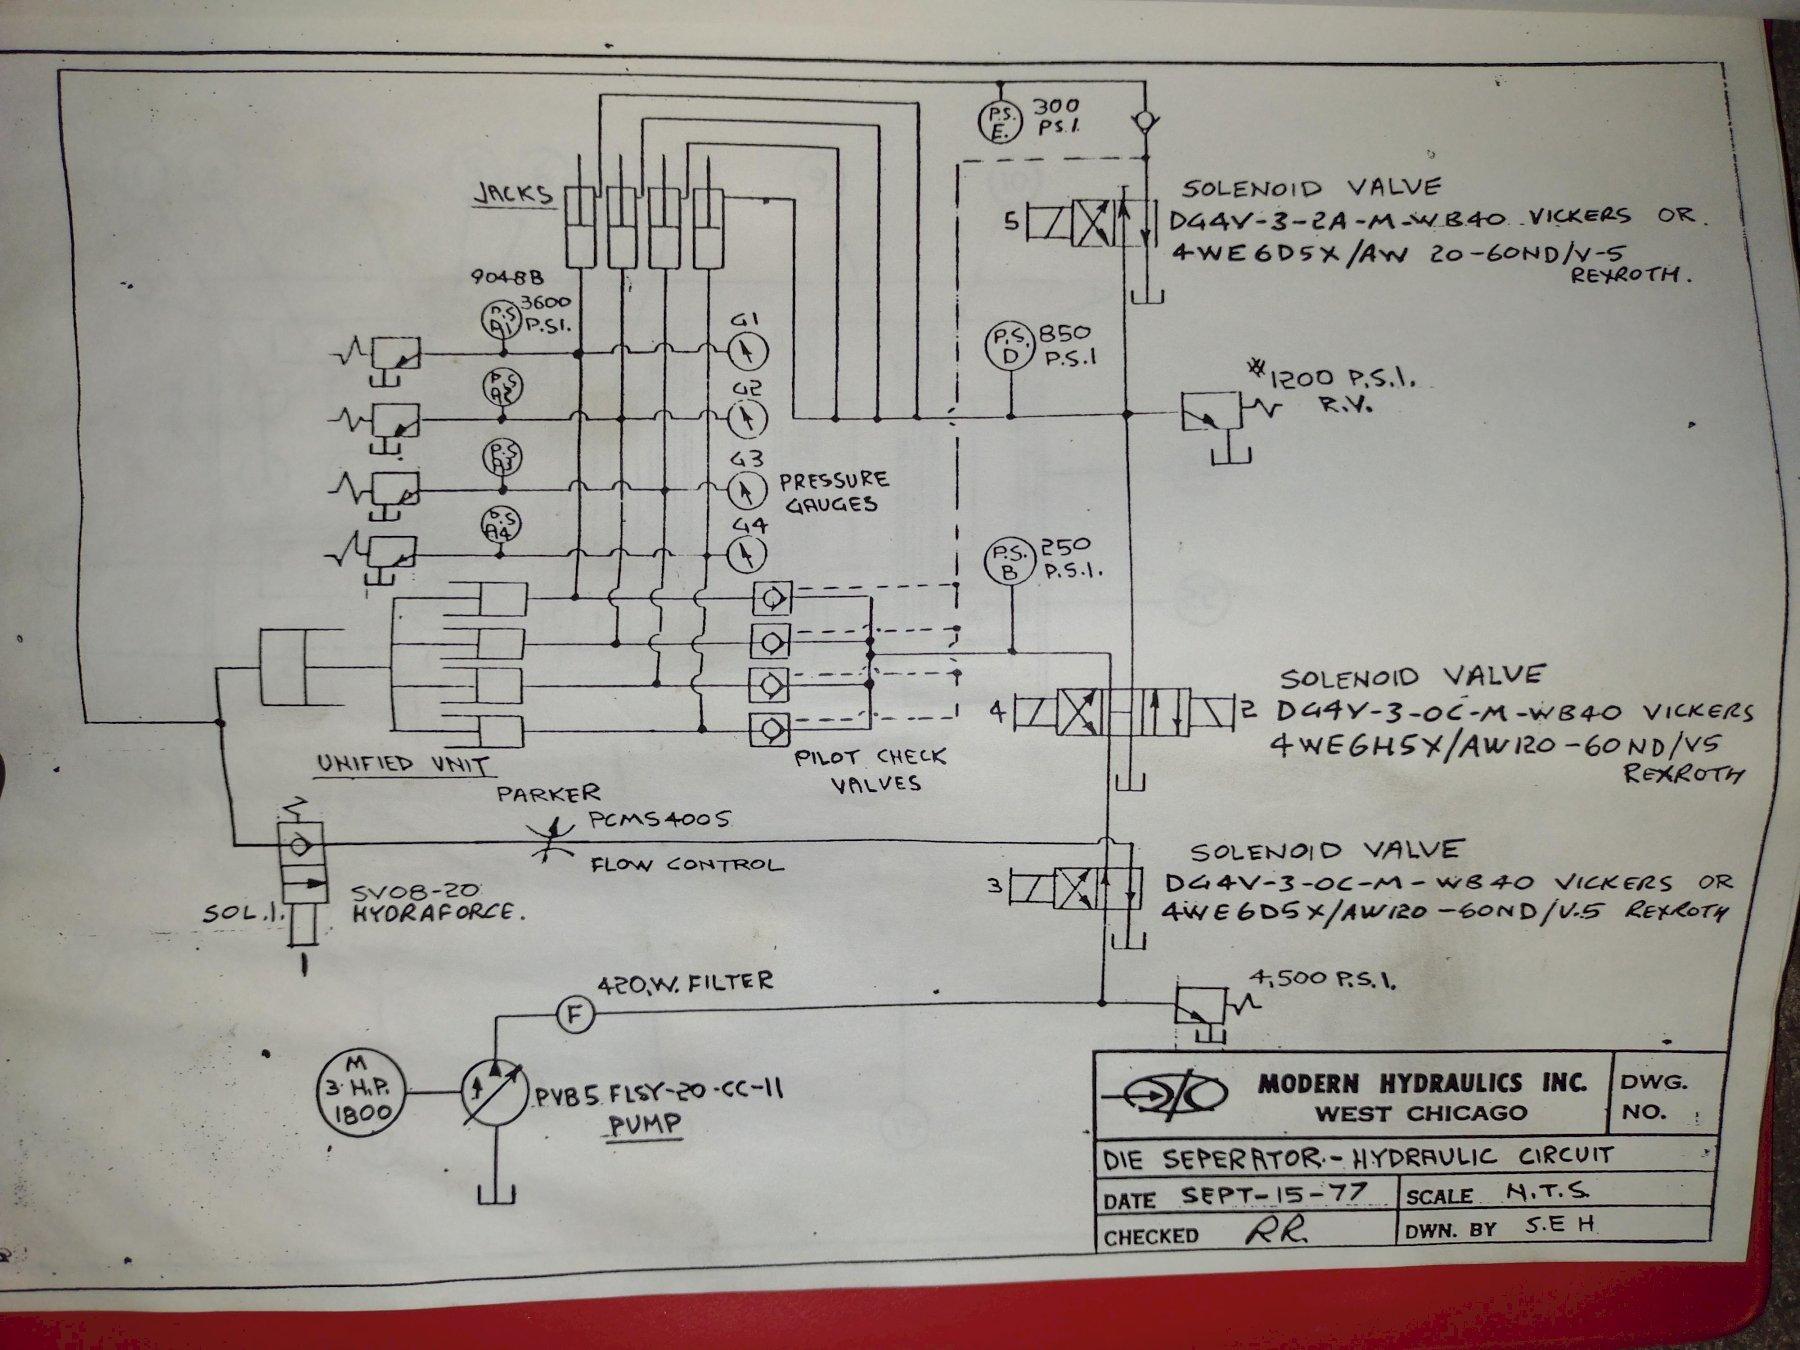 P.S.
E.
300
P.S.I.
JACKS
SOLENOID VALVE
5
DG4V-3-2A-M-WB40 VICKERS OR.
4WE6D5X/AW 20-60ND/V-5
REXROTH.
9048B
P.S
A1
3600
P.S.I.
G1
P.S.
D
850
P.S.I
*1200 P.S.I.
R.V.
P.S
A2
G2
P.S
A3
G3
PRESSURE
GAUGES
P.S
A4
G4
P.S.
B
250
P.S.I.
SOLENOID VALVE
4
2
DG4V-3-OC-M-WB40 VICKERS
4WE6H5X/AW120-60ND/V5
REXROTH
UNIFIED UNIT
PILOT CHECK
VALVES
PARKER
PCMS400S
FLOW CONTROL
SOLENOID VALVE
3
DG4V-3-OC-M-WB40 VICKERS OR
4WE6D5X/AW120-60ND/V.5 REXROTH
SOL.1.
SV08-20
HYDRAFORCE.
1
420.W. FILTER
F
4,500 P.S.I.
M
3 H.P.
1800
PVB5 FLSY-20-CC-11
PUMP
MODERN HYDRAULICS INC.
WEST CHICAGO
DWG.
NO.
DIE SEPERATOR.-HYDRAULIC CIRCUIT
DATE SEPT-15-77
SCALE N.T.S.
CHECKED RR.
DWN. BY S.E H